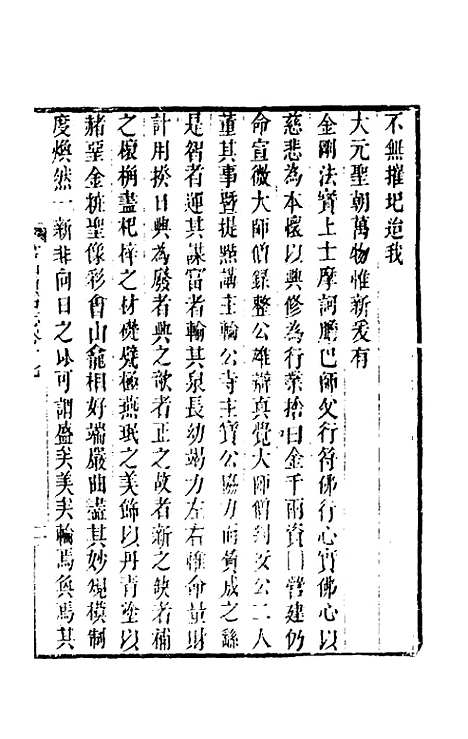 不無摧圯迨我
大元聖朝萬物惟新爰有
金剛法寶上士摩訶膽巴師父行符佛行心實佛心以
慈悲為本懷以興修為行業捨白金千兩資口營建仍
命宣微大師僧錄整公雄辯真覺大師僧判汝公二人
董其事暨提點講主輪公寺主寶公協力而贊成之繇
是智者運其謀富者輸其泉長幼竭力左右雜命量財
計用揆日興為廢者興之欹者正之故者新之缺者補
之欀桷盡杞梓之材礎甃極燕珉之美飾以丹青塗以
赭堊金粧聖像彩繪山龕相好端嚴曲盡其妙規模制
度煥然一新非向日之比可謂盛矣美矣輪焉奐焉其